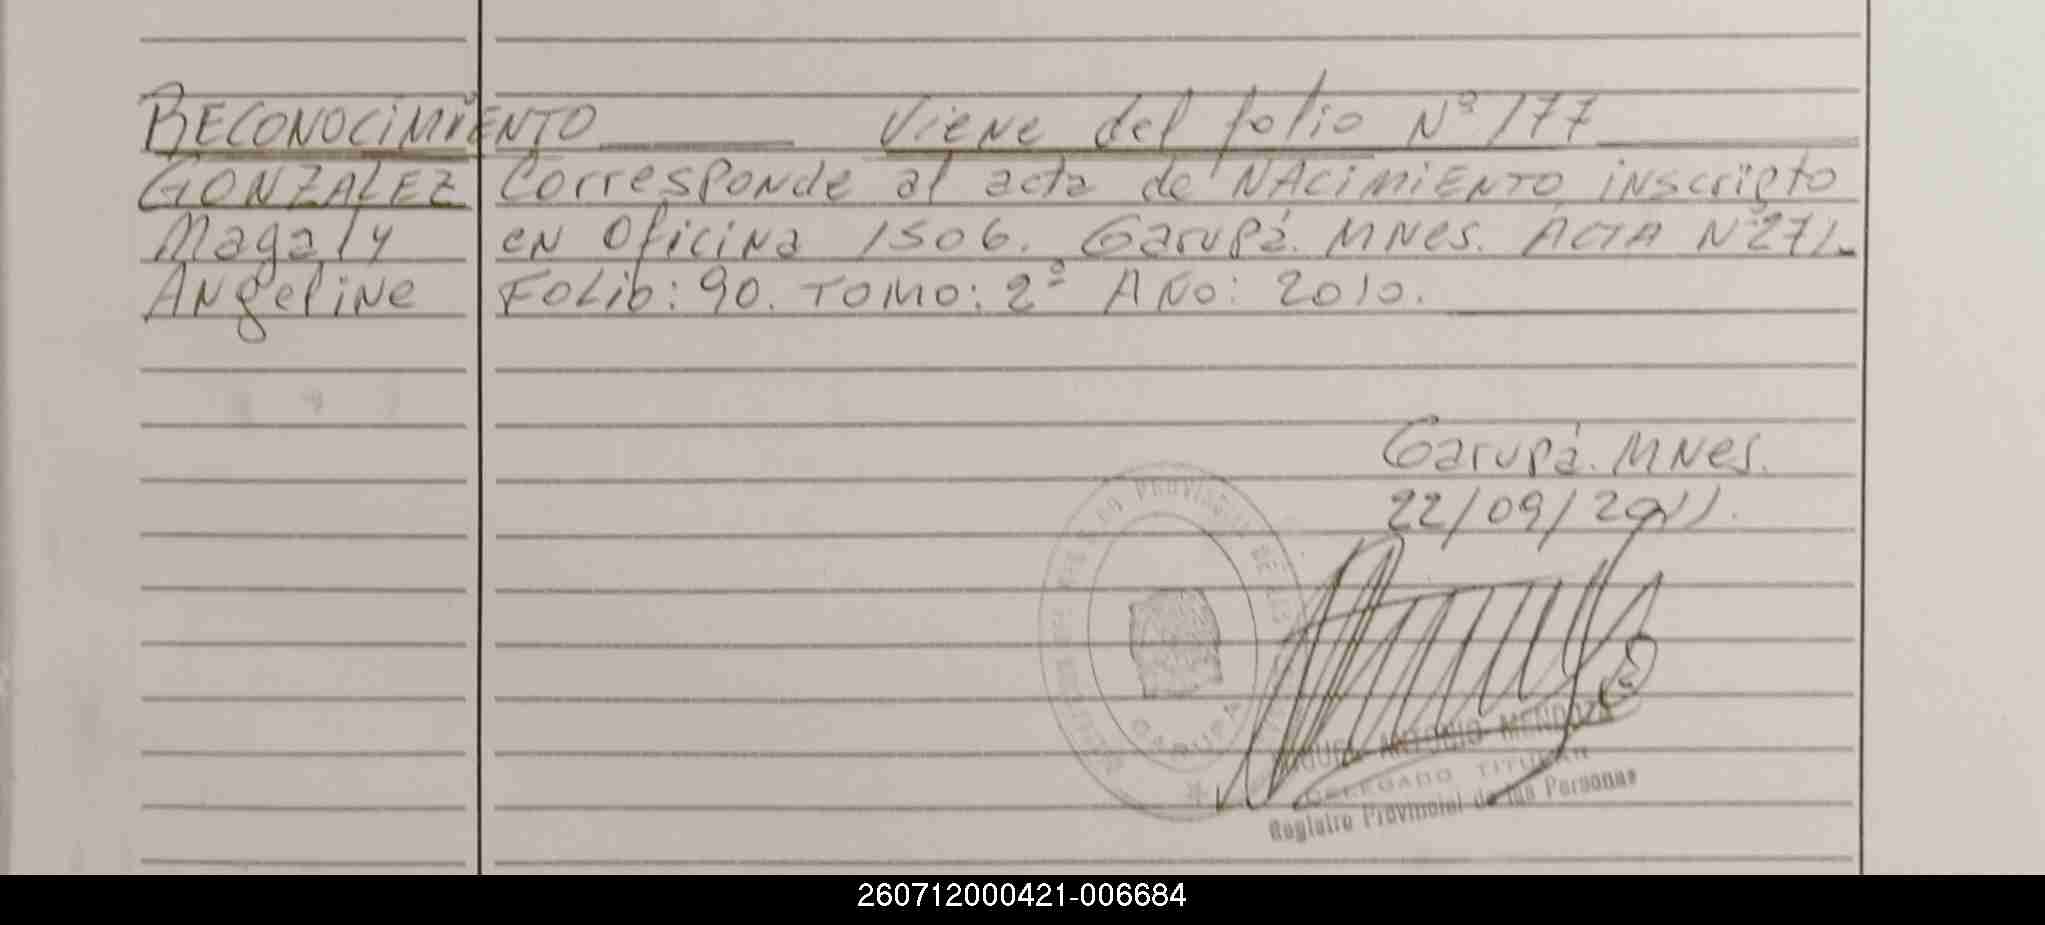 RECONOCIMIENTO Viene del folio Nº 177
GONZALEZ Corresponde al acta de NACIMIENTO inscripto
Magaly en Oficina 1506. Garupá. MNES. ACTA Nº271.
Angeline FOLIO: 90. TOMO: 2º AÑO: 2010.
Garupá. MNES.
22/09/2011.
PROVINCIAL DE LAS
GARUPA
ANTONIO MENDOZA
DELEGADO TITULAR
Registro Provincial de las Personas
260712000421-006684